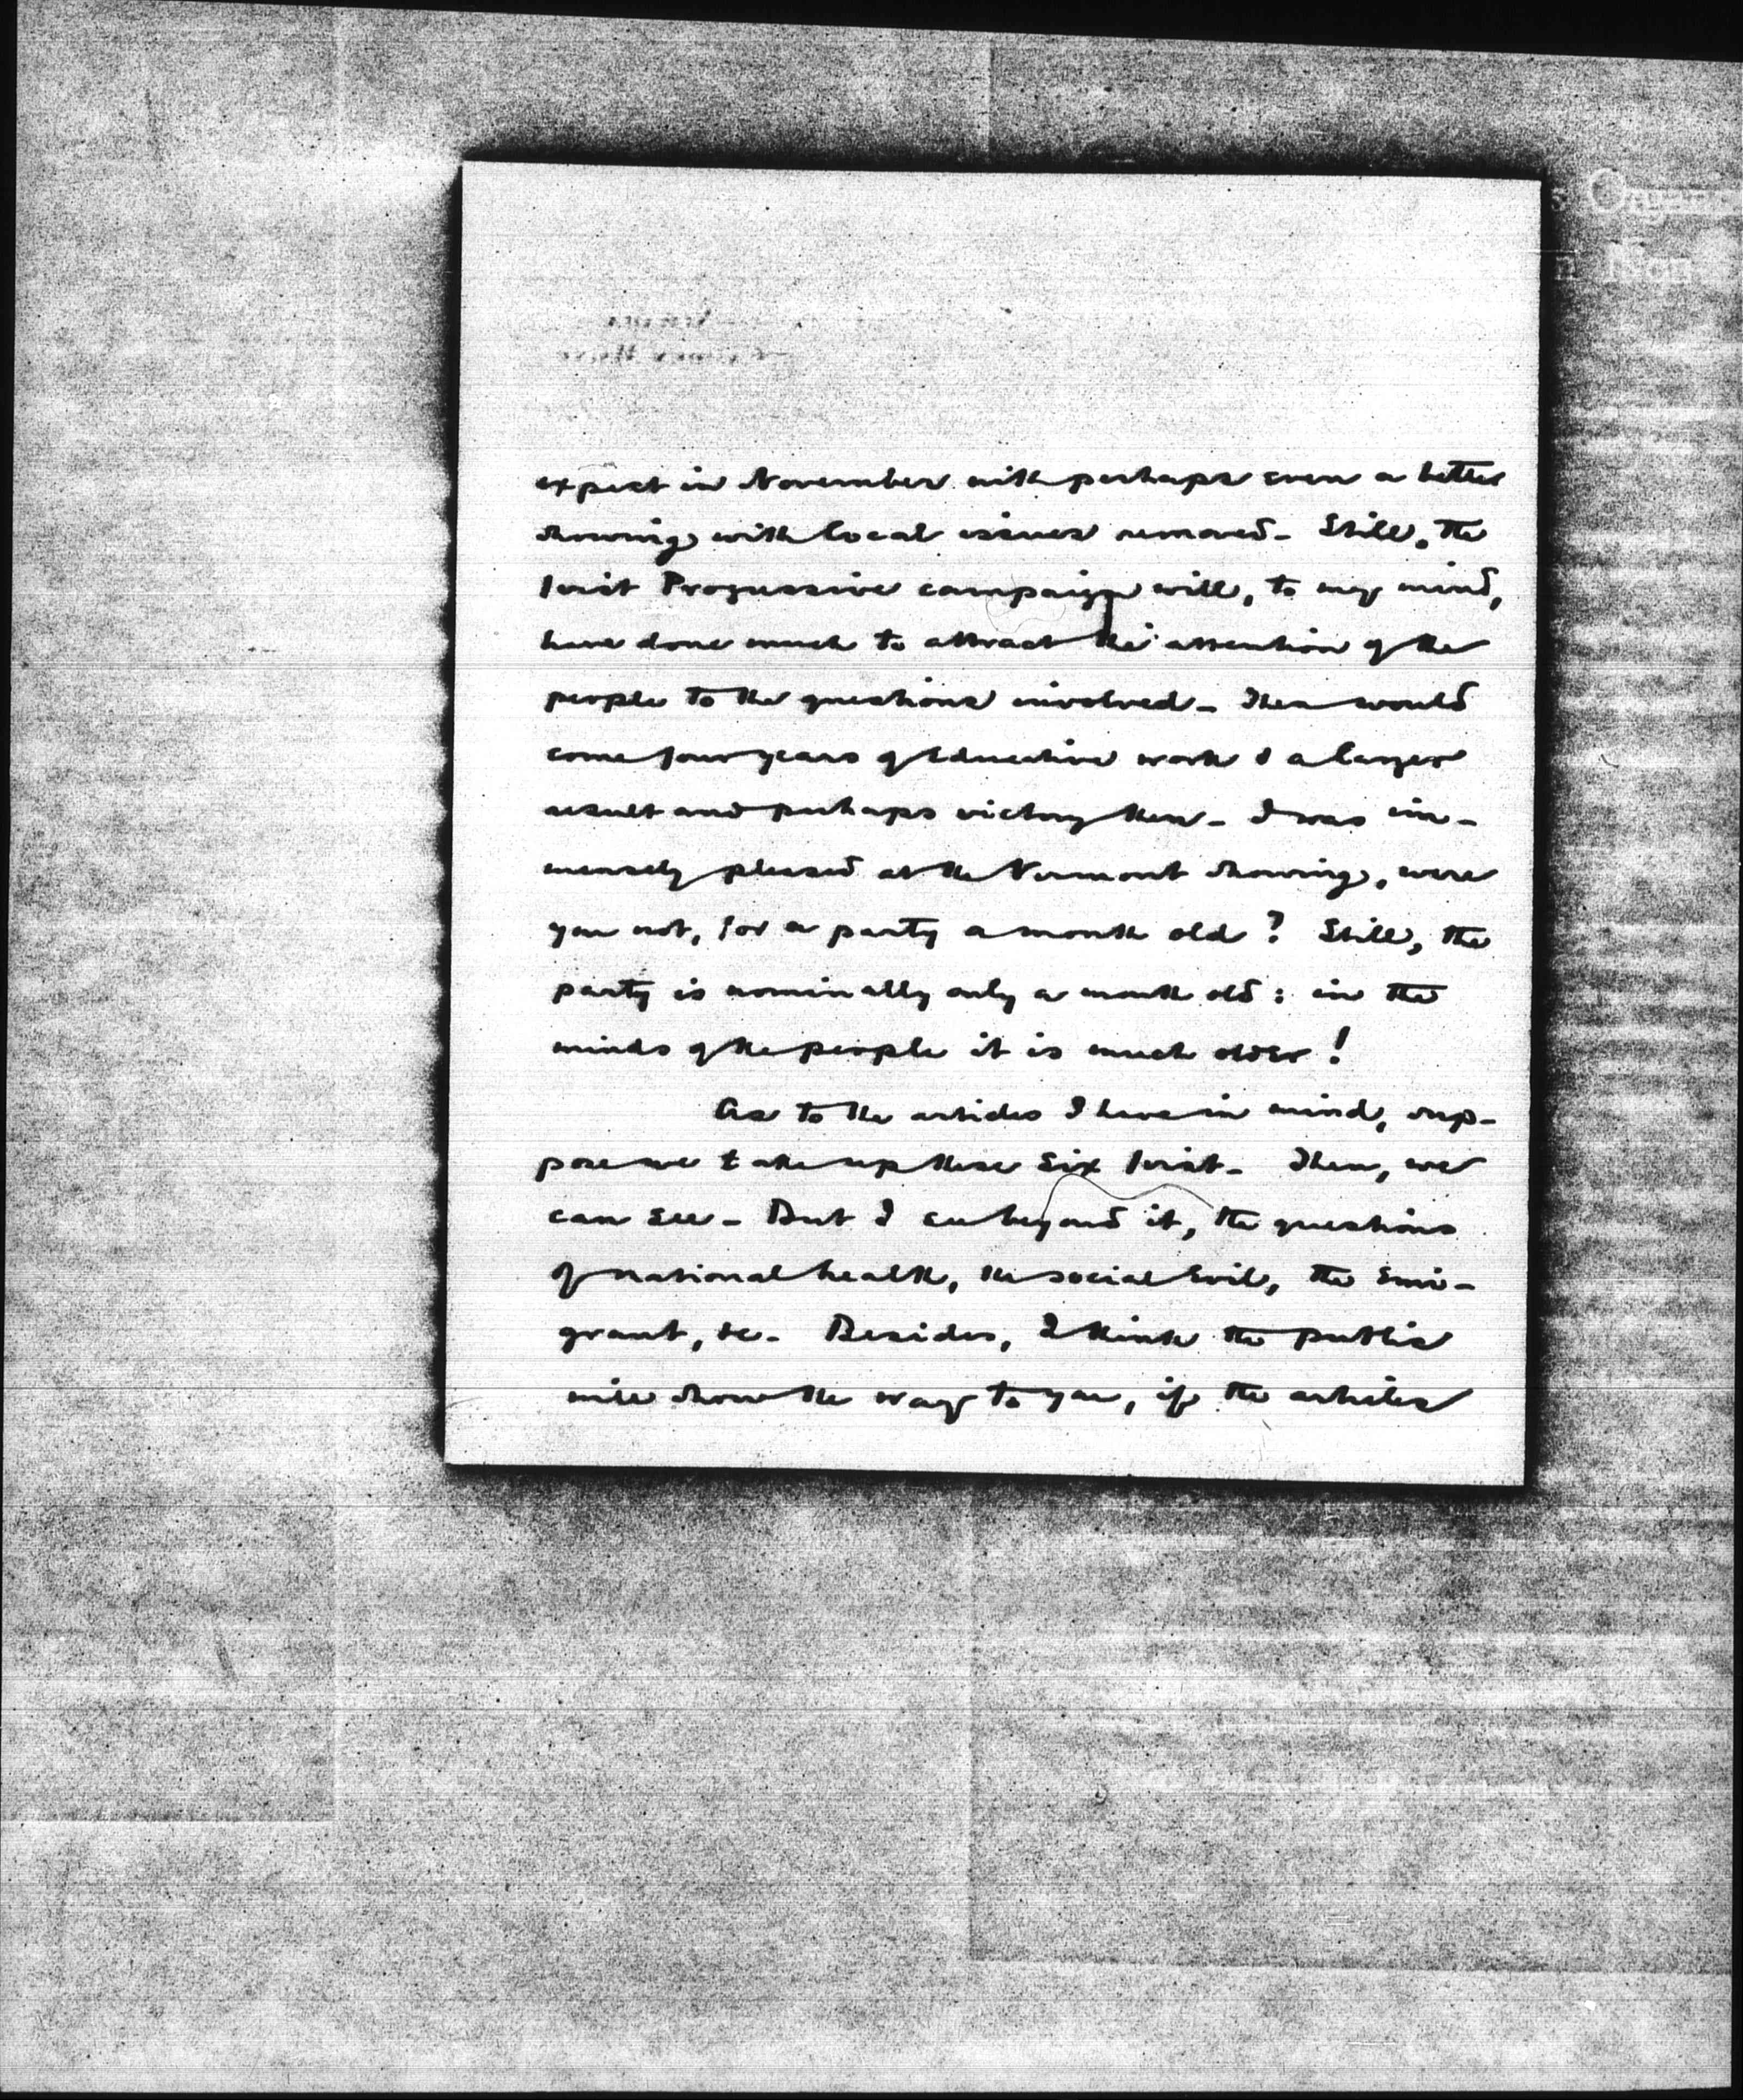 s Organ
n Mon
expect in November with perhaps even a better
showing with local issues removed - Still, the
first Progressive campaign will, to my mind,
have done much to attract the attention of the
people to the questions involved - Then would
come four years of educative work & a larger
result and perhaps victory then - I was im-
mensely pleased at the Vermont showing, were
you not, for a party a month old? Still, the
party is nominally only a month old: in the
minds of the people it is much older!
As to the articles I have in mind, sup-
pose we take up these six first - Then, we
can see - But I see beyond it, the questions
of national health, the social evil, the emi-
grant, &c. Besides, I think the public
will show the way to you, if the articles